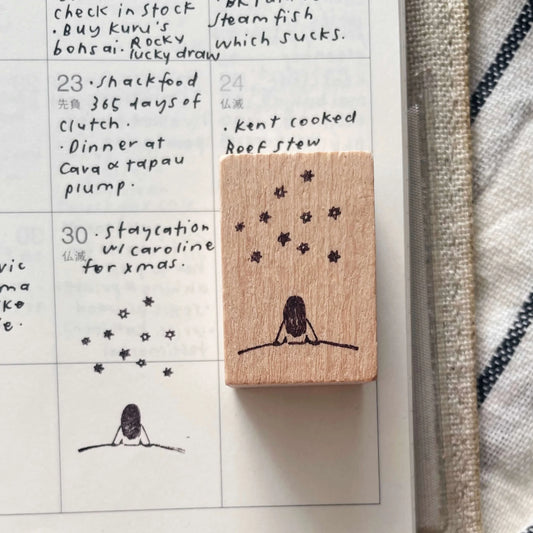 check in stock
• Buy Kuru's
bonsai. Rocky
lucky draw
Steam fish
which sucks.
23 • Shackfood
先負 365 days of
clutch.
• Dinner at
Cava & tapau
plump.
24
仏滅
• Kent cooked
Beef stew
30 • Staycation
仏滅 w/ caroline
for xmas.
vic
ma
ke
e.